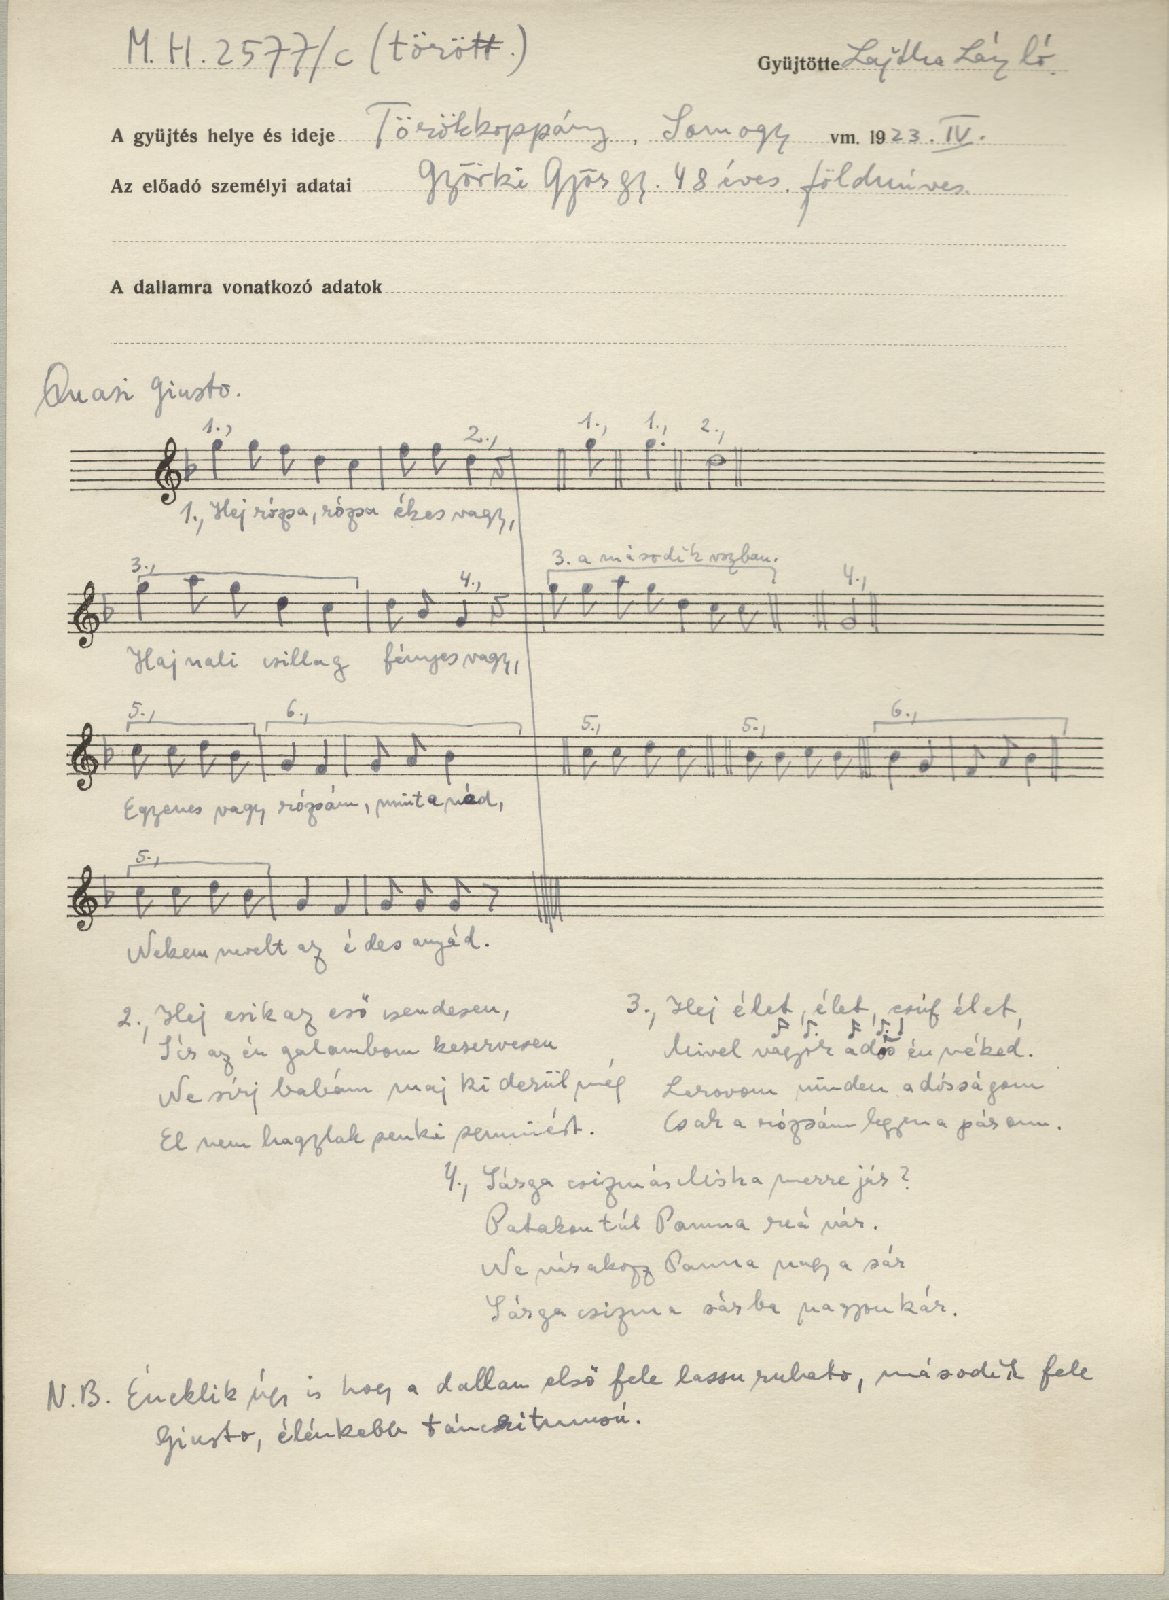 M.H. 2577/c (törött.)
Gyüjtötte Lajtha László.
A gyüjtés helye és ideje Törökkoppány, Somogy vm. 1923. IV.
Az előadó személyi adatai Györki György. 48 éves. földmíves.
A dallamra vonatkozó adatok
Quasi giusto.
1., 2., 1., 1., 2.,
1., Hej rózsa, rózsa ékes vagy,
3., 4., 3. a második vszban. 4.,
Hajnali csillag fényes vagy,
5., 6., 5., 5., 6.,
Egyenes vagy rózsám, mint a nád,
5.,
Nekem nevelt az édes anyád.
2., Hej esik az eső csendesen,
Sír az én galambom keservesen
Ne sírj babám maj ki derül még
El nem hagylak senki semmiért.
3., Hej élet, élet, csúf élet,
Mivel vagyok adós én néked.
Lerovom minden adósságom
Csak a rózsám legyen a párom.
4., Sárga csizmás Miska merre jár?
Patakon túl Panna reá vár.
Ne várakozz Panna nagy a sár
Sárga csizma sárba nagyon kár.
N.B. Éneklik úgy is hogy a dallam első fele lassu rubato, második fele
Giusto, élénkebb táncritmusú.